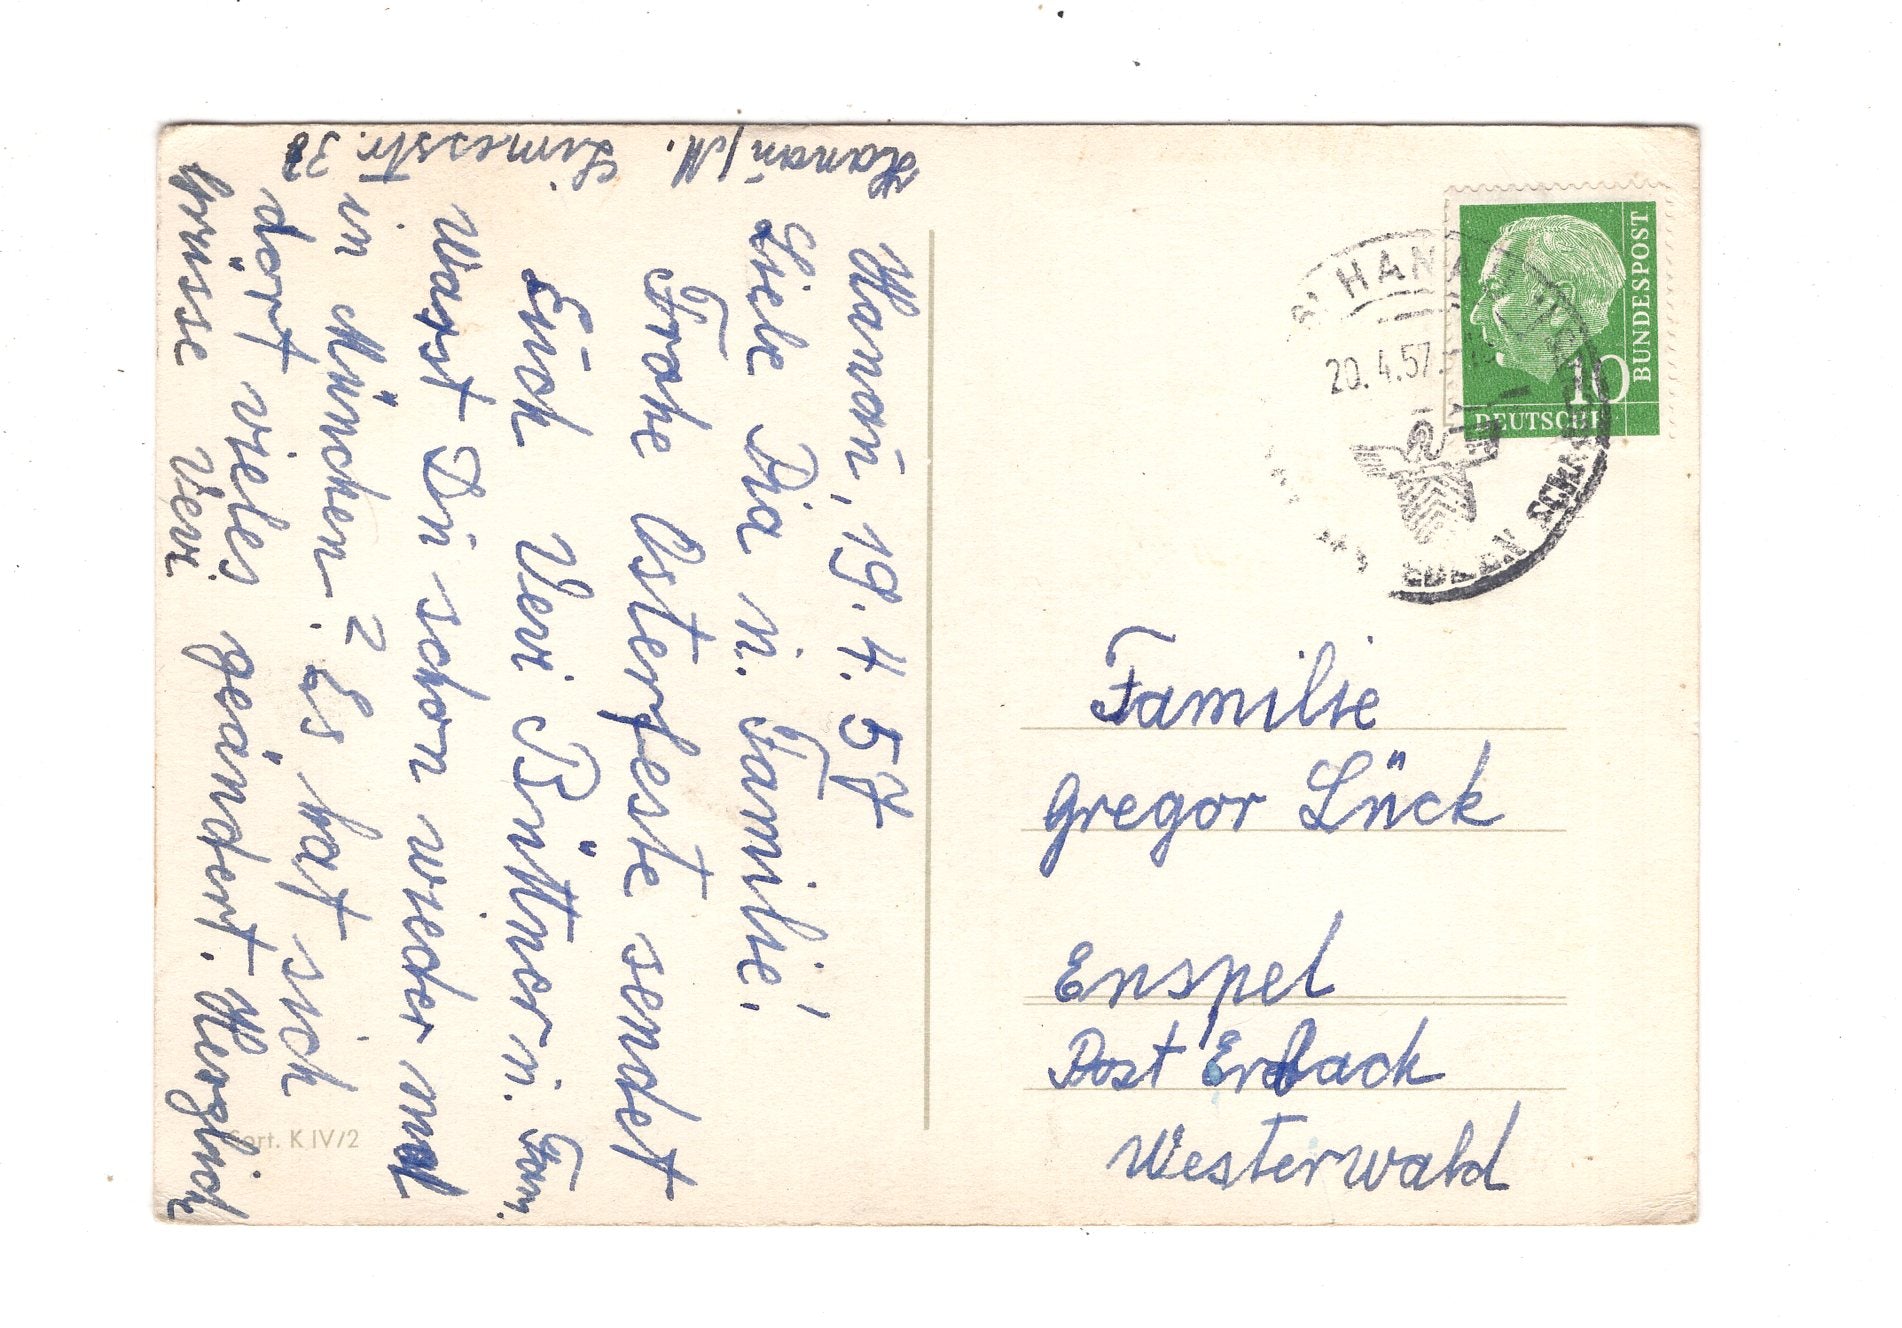 Hanau/M. Limesstr. 38
Hanau, 19. 4. 57
Liebe Pia u. Familie!
Frohe Osterfeste sendet
Euch Veri Büttner u. Fam.
Warst Du schon wieder mal
in München? Es hat sich
dort vieles geändert. Herzliche
Grüsse Veri
Sort. K IV/2
HANAU
20.4.57
EDLEN SCHM
10
BUNDESPOST
DEUTSCHE
Familie
Gregor Lück
Enspel
Post Erbach
Westerwald